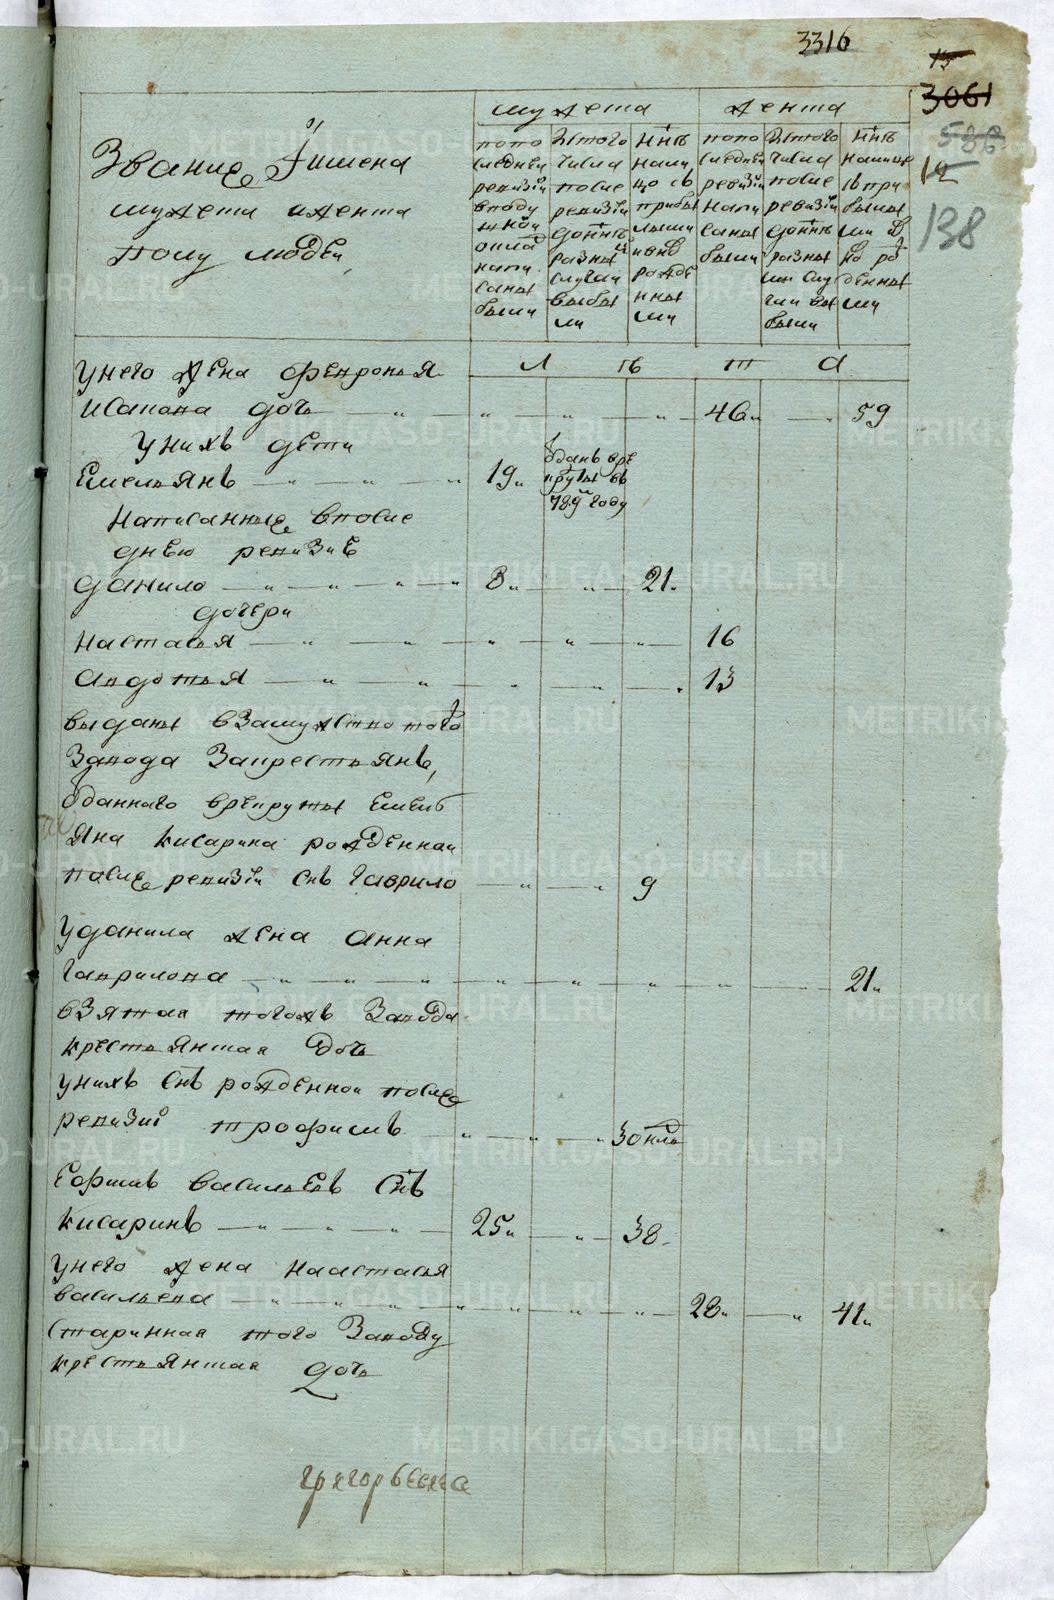 3316
15
3061
586
12
138
Звание и имена
мужеска и женска
полу людеи
мужеска
женска
по по
следнеи
ревизiи
в поду
шнои
оклад
напи
саны
были
Из того
числа
после
ревизiи
до нне
разны
случаи
выбы
ли
ннѣ
нали
цо съ
прибы
лыми
и внов
рожде
нны
ми
по по
следнеи
ревизiи
напи
саны
были
Из того
числа
после
ревизiи
до нне
разны
ми слу
чаи вы
были
ннѣ
налице
съ при
былы
ми и в
но ро
жденны
ми
лѣта
У него жена Февронья
Исакова дочь — 46 — 59
У нихъ дети
Емельянъ — 19
Отданъ вре
круты въ
789м году
Написанные в после
днею ревизие
Данило — 8 — 21
дочери
Настасья — 16
Авдотья — 13
выданы в замужство того
Завода за крестьянъ,
Отданнаго врекруты Емель
яна Кисарина рожденнои
после ревизiи снъ Гаврило — 9
У данила жена Анна
Гаврилова — 21
взятая тогожъ Завода
крестьянская дочь
У нихъ снъ рожденнои после
ревизиi Трофимъ — 30 нль
Ефимъ Васильевъ снъ
Кисаринъ — 25 — 38
У него жена Наастасья
Васильева — 28 — 41
Старинная того Заводу
крестьянская дочь
Григорьевска
METRIKI.GASO-URAL.RU